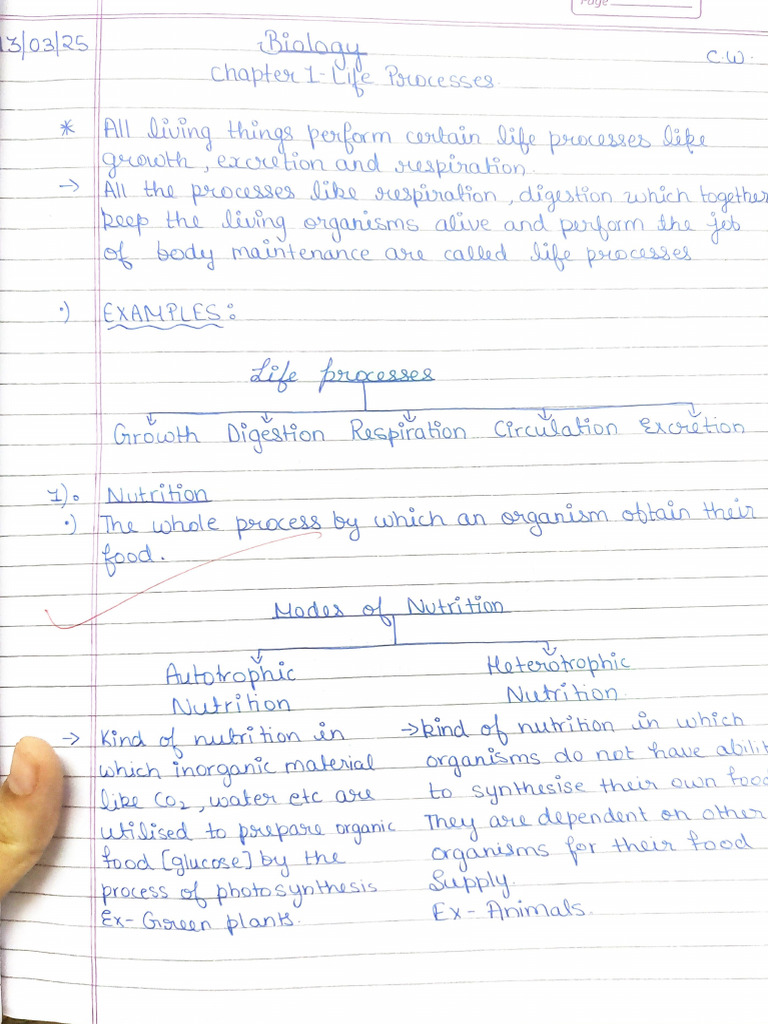 Page
13/03/25
Biology
C.W.
Chapter 1- Life Processes.
* All living things perform certain life processes like
growth, excretion and respiration.
→ All the processes like respiration, digestion which together
keep the living organisms alive and perform the job
of body maintenance are called life processes
•) EXAMPLES:
Life processes
Growth Digestion Respiration Circulation Excretion
1). Nutrition
•) The whole process by which an organism obtain their
food.
Modes of Nutrition
Autotrophic
Nutrition
→ Kind of nutrition in
which inorganic material
like CO₂, water etc are
utilised to prepare organic
food [glucose] by the
process of photosynthesis
Ex- Green plants.
Heterotrophic
Nutrition
→ kind of nutrition in which
organisms do not have abilit
to synthesise their own food
They are dependent on other
organisms for their food
Supply.
Ex- Animals.